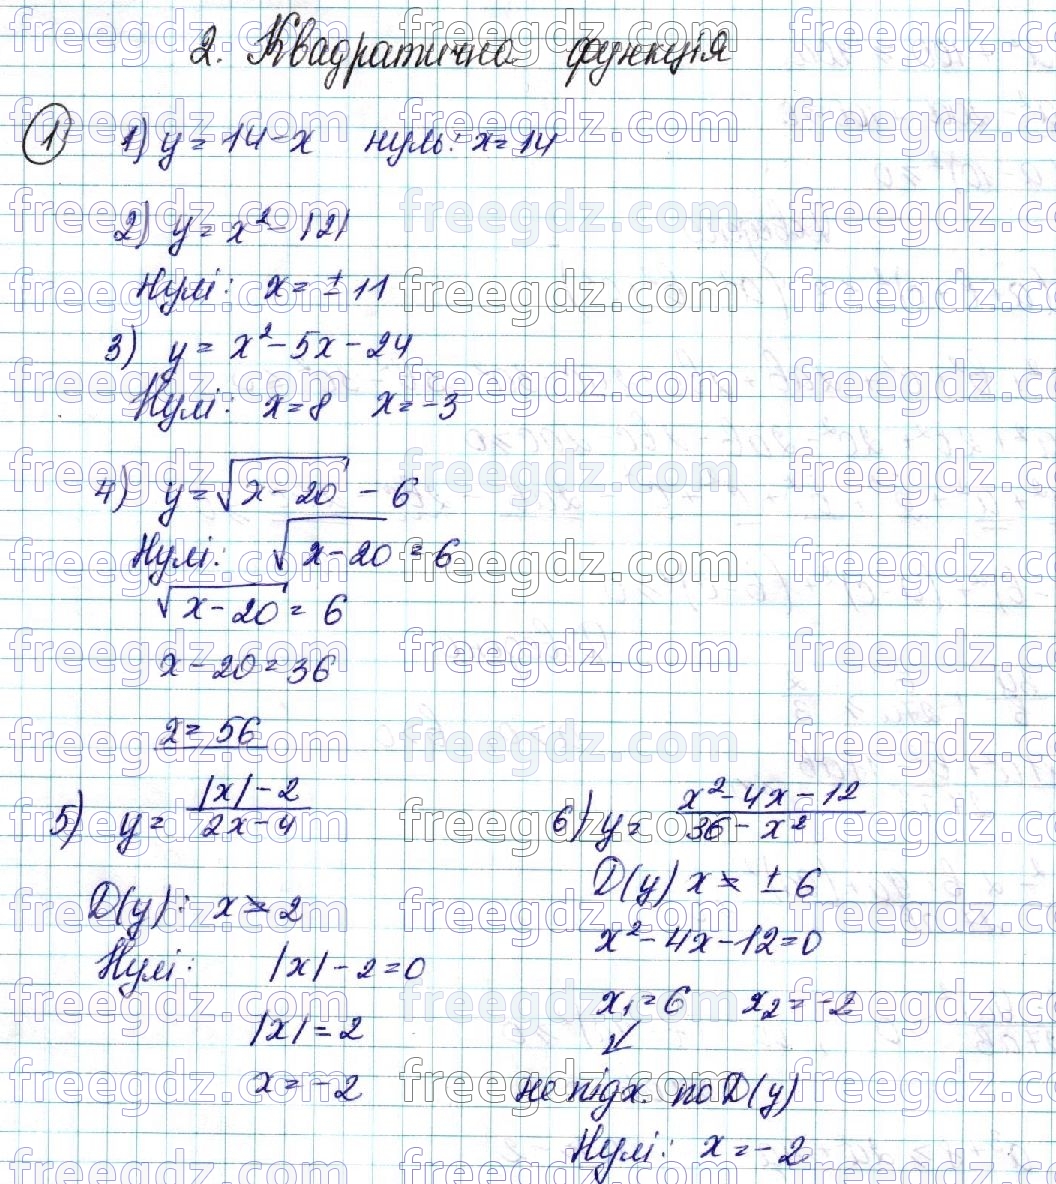 2. Квадратична функція
1) 1) y = 14 - x нуль: x = 14
2) y = x² - 121
Нулі: x = ± 11
3) y = x² - 5x - 24
Нулі: x = 8 x = -3
4) y = √(x - 20) - 6
Нулі: √(x - 20) = 6
√(x - 20) = 6
x - 20 = 36
x = 56
5) y = (|x| - 2)/(2x - 4)
D(y): x ≠ 2
Нулі: |x| - 2 = 0
|x| = 2
x = -2
6) y = (x² - 4x - 12)/(36 - x²)
D(y) x ≠ ± 6
x² - 4x - 12 = 0
x₁ = 6 x₂ = -2
↙
не підх. по D(y)
Нулі: x = -2
freegdz.com